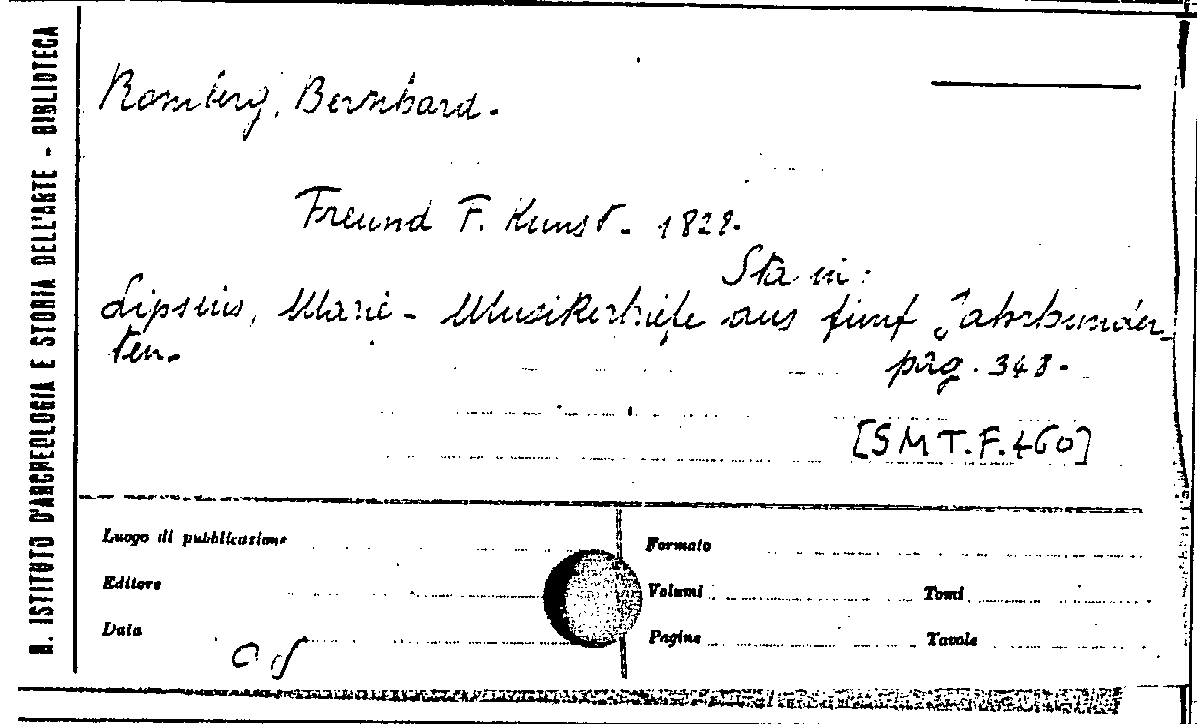 R. ISTITUTO D'ARCHEOLOGIA E STORIA DELL'ARTE - BIBLIOTECA
Romberg, Bernhard.
Freund F. Kunst - 1828.
Sta in:
Lipsius, Marie - Musikerbriefe aus fünf Jahrhunder-
ten.
pag. 348.
[SMT.F.460]
Luogo di pubblicazione
Formato
Editore
Volumi
Tomi
Data
Pagine
Tavole